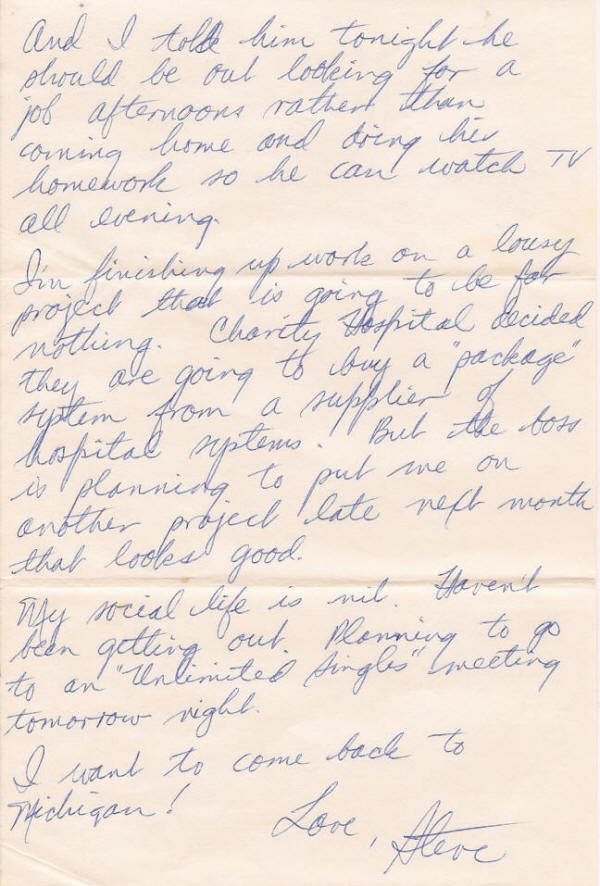 And I told him tonight he
should be out looking for a
job afternoons rather than
coming home and doing his
homework so he can watch TV
all evening.
I'm finishing up work on a lousy
project that is going to be for
nothing. Charity Hospital decided
they are going to buy a "package"
system from a supplier of
hospital systems. But the boss
is planning to put me on
another project late next month
that looks good.
My social life is nil. Haven't
been getting out. Planning to go
to an "Unlimited Singles" meeting
tomorrow night.
I want to come back to
Michigan!
Love, Steve